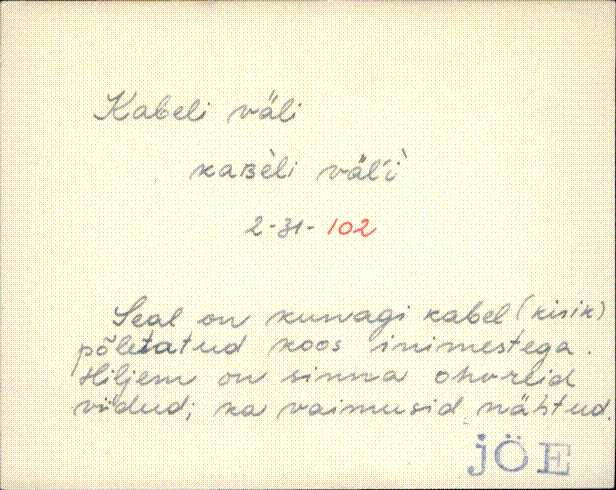 Kabeli väli
kaʙèli väľì
2-31-102
Seal on kunagi kabel (kirik)
põletatud koos inimestega.
Hiljem on sinna ohvreid
viidud; ka vaimusid nähtud.
JÕE